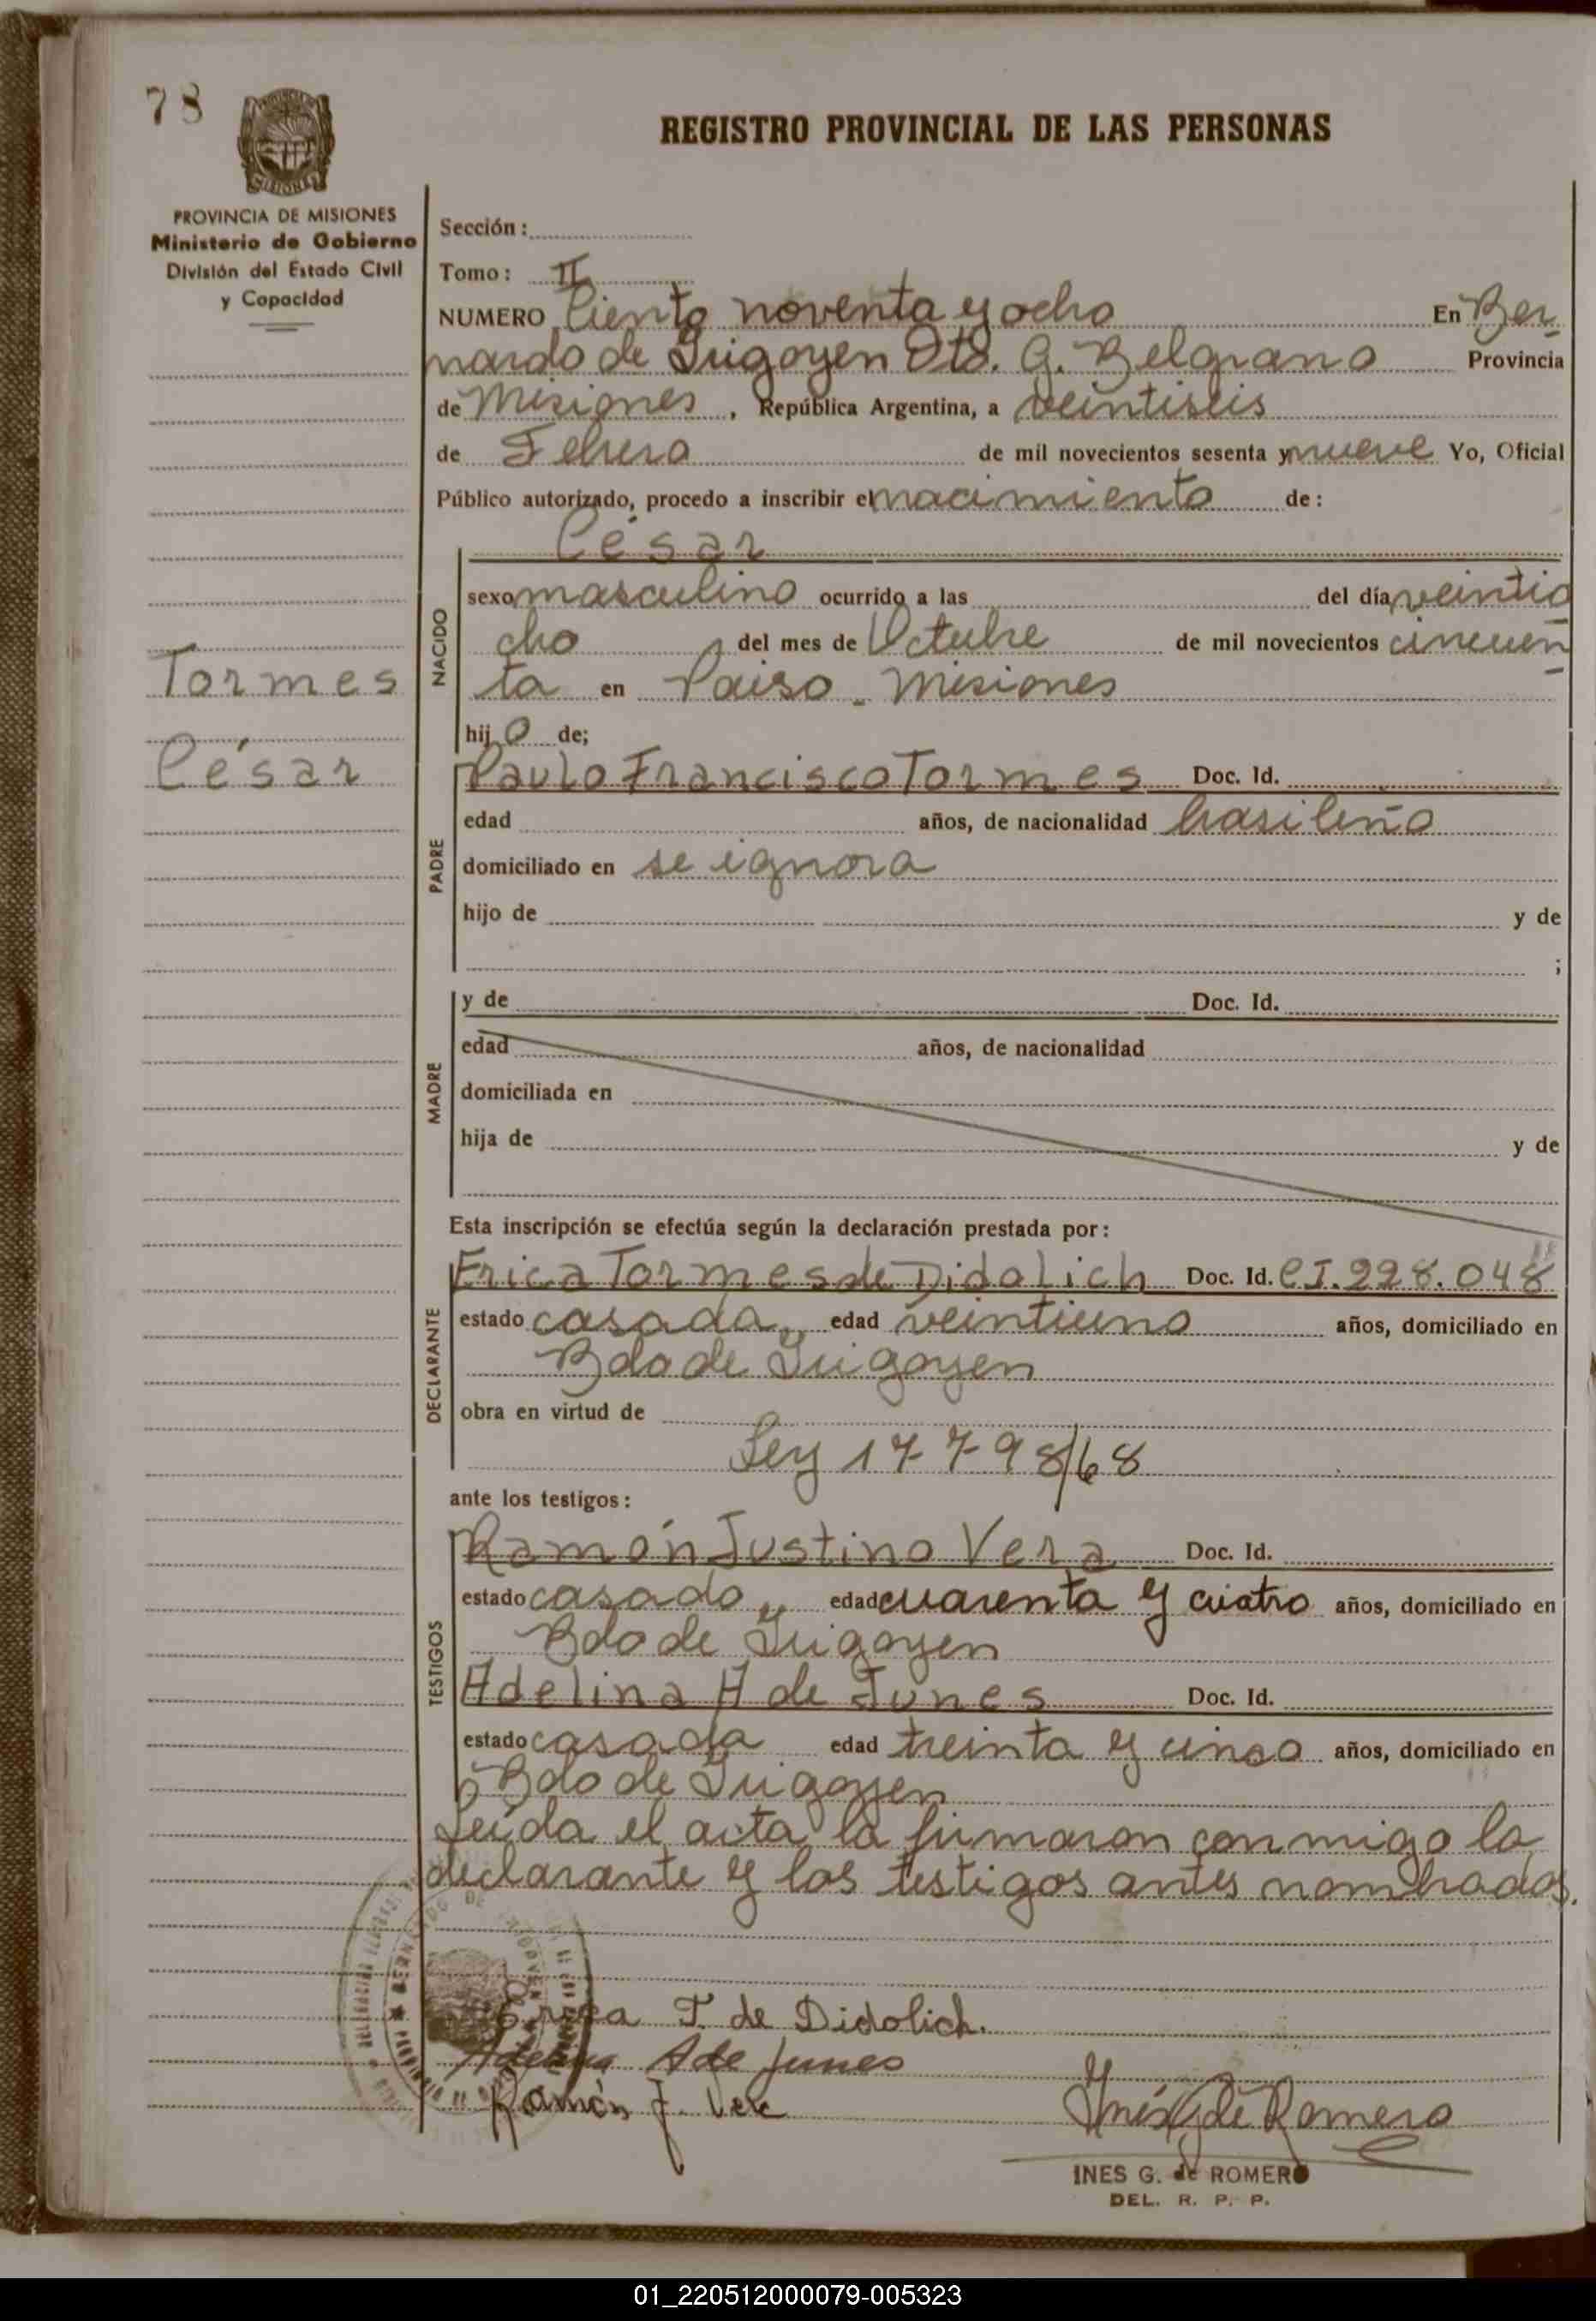 78
REGISTRO PROVINCIAL DE LAS PERSONAS
PROVINCIA DE MISIONES
Ministerio de Gobierno
División del Estado Civil
y Capacidad
Sección:
Tomo: II
NUMERO Ciento noventa y ocho En Ber-
nardo de Irigoyen Dto. G. Belgrano Provincia
de Misiones, República Argentina, a veintiseis
de Febrero de mil novecientos sesenta y nueve Yo, Oficial
Público autorizado, procedo a inscribir el nacimiento de:
César
NACIDO
sexo masculino ocurrido a las del día veintio
cho del mes de Octubre de mil novecientos cincuen-
ta en Paiso - Misiones
hijo de;
Tormes
César
PADRE
Paulo Francisco Tormes Doc. Id.
edad años, de nacionalidad brasileño
domiciliado en se ignora
hijo de y de
;
MADRE
y de Doc. Id.
edad años, de nacionalidad
domiciliada en
hija de y de
Esta inscripción se efectúa según la declaración prestada por:
DECLARANTE
Erica Tormes de Didolich Doc. Id. CI. 228.048
estado casada, edad veintiuno años, domiciliado en
Bdo de Irigoyen
obra en virtud de
Ley 17798/68
ante los testigos:
TESTIGOS
Ramón Justino Vera Doc. Id.
estado casado, edad cuarenta y cuatro años, domiciliado en
Bdo de Irigoyen
Adelina A de Junes Doc. Id.
estado casada edad treinta y cinco años, domiciliado en
Bdo de Irigoyen
Leída el acta la firmaron conmigo la
declarante y los testigos antes nombrados.
Erica T. de Didolich.
Adelina A de Junes
Ramón J. Vera
Inés G de Romero
INES G. de ROMERO
DEL. R. P. P.
01_220512000079-005323